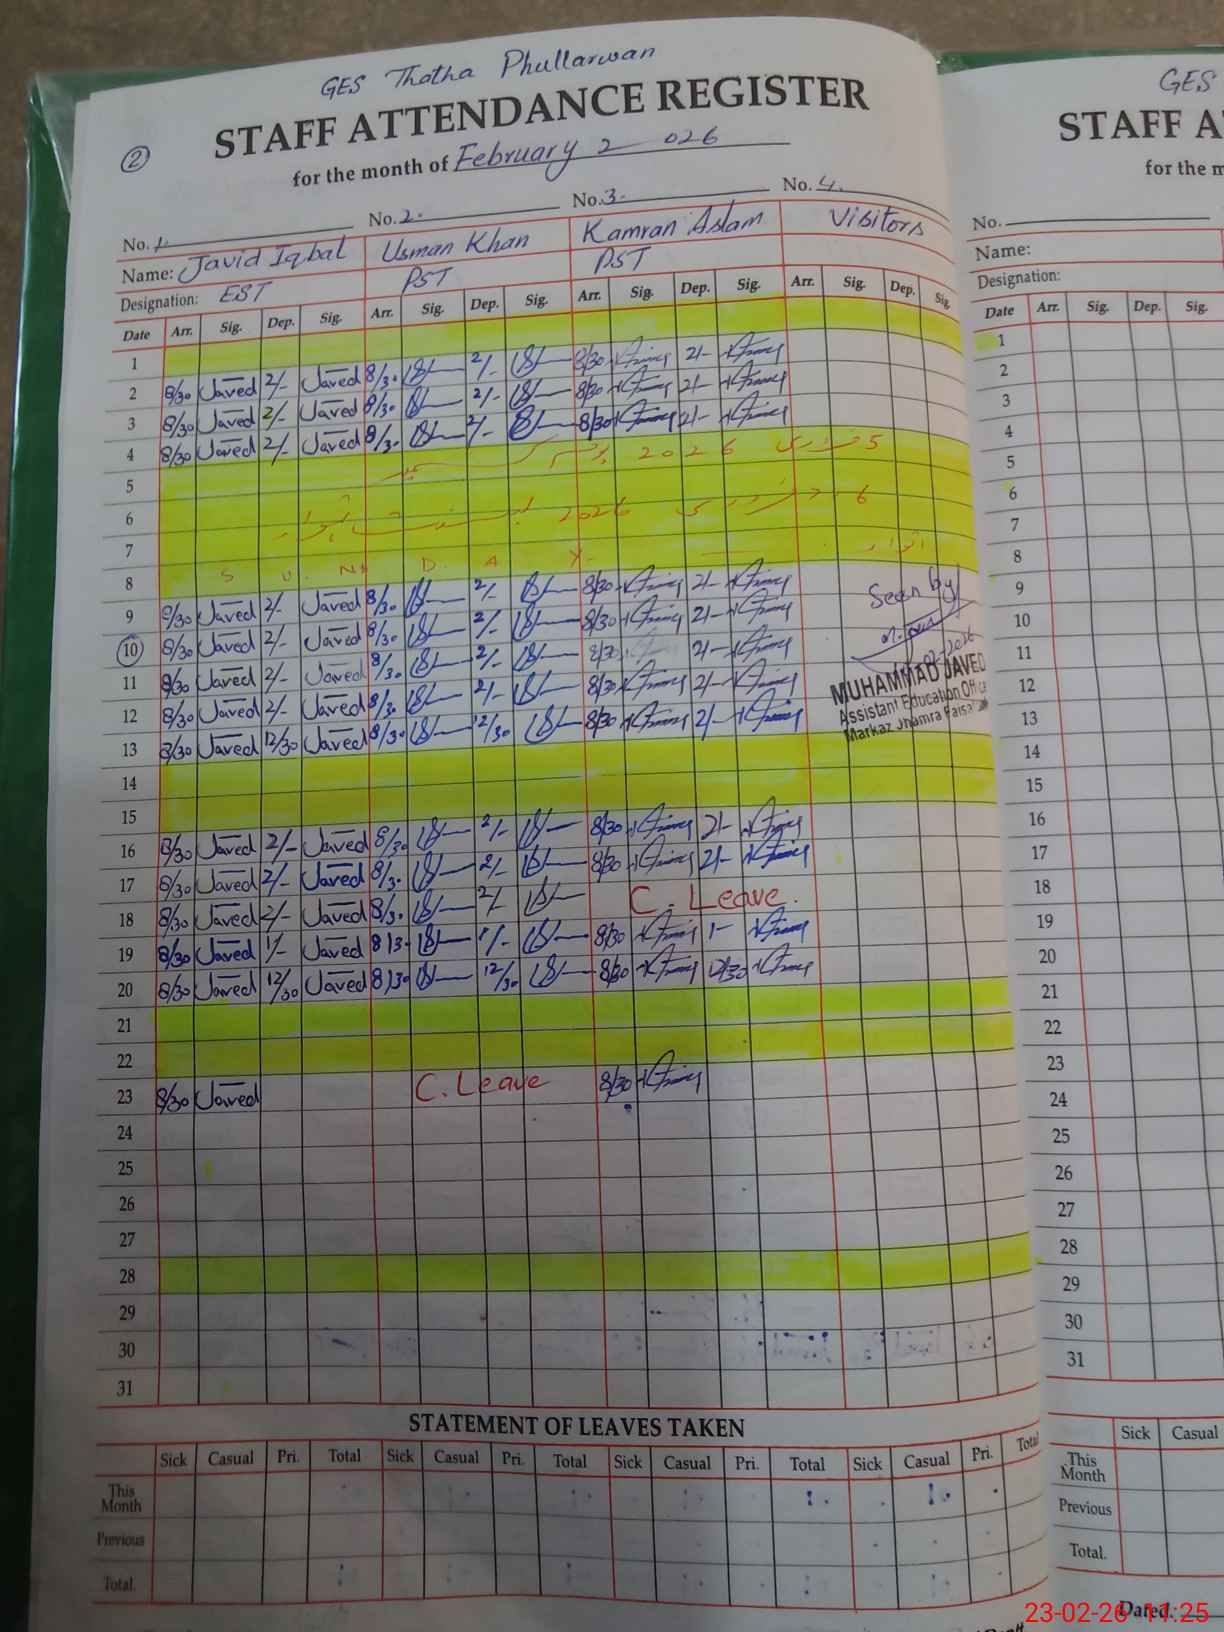 GES Thotha Phullarwan
STAFF ATTENDANCE REGISTER
② for the month of February 2 026
No. 1. No. 2. No. 3. No. 4.
Name: Javid Iqbal Usman Khan Kamran Aslam Visitors
Designation: EST PST PST
Date Arr. Sig. Dep. Sig. Arr. Sig. Dep. Sig. Arr. Sig. Dep. Sig. Arr. Sig. Dep. Sig.
1
2 8/30 Javed 2/- Javed 8/30 2/- 8/30 2/-
3 8/30 Javed 2/- Javed 8/30 2/- 8/30 2/-
4 8/30 Javed 2/- Javed 8/30 2/- 8/30 2/-
5 5 فروری 2026
6 6 فروری 2026
7
8 S U N D A Y. اتوار
9 8/30 Javed 2/- Javed 8/30 2/- 8/30 2/- Seen by
10 8/30 Javed 2/- Javed 8/30 2/- 8/30 2/-
11 8/30 Javed 2/- Javed 8/30 2/- 8/30 2/-
12 8/30 Javed 2/- Javed 8/30 2/- 8/30 2/-
13 8/30 Javed 12/30 Javed 8/30 12/30 8/30 2/-
MUHAMMAD JAVED
Assistant Education Officer
Markaz Jhamra
14
15
16 8/30 Javed 2/- Javed 8/30 2/- 8/30 2/-
17 8/30 Javed 2/- Javed 8/30 2/- 8/30 2/-
18 8/30 Javed 2/- Javed 8/30 2/- C. Leave.
19 8/30 Javed 1/- Javed 8/30 1/- 8/30 1-
20 8/30 Javed 12/30 Javed 8/30 12/30 8/30 12/30
21
22
23 8/30 Javed C. Leave 8/30
24
25
26
27
28
29
30
31
STATEMENT OF LEAVES TAKEN
Sick Casual Pri. Total Sick Casual Pri. Total Sick Casual Pri. Total Sick Casual Pri. Total
This Month
Previous
Total.
GES
STAFF A
for the m
No.
Name:
Designation:
Date Arr. Sig. Dep. Sig.
1
2
3
4
5
6
7
8
9
10
11
12
13
14
15
16
17
18
19
20
21
22
23
24
25
26
27
28
29
30
31
Sick Casual
This Month
Previous
Total.
Dated:
23-02-26 11:25